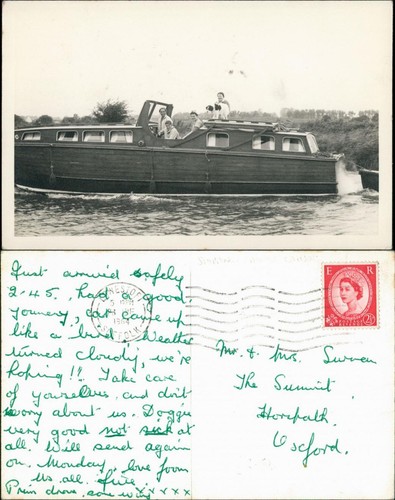 Just arrived safely
2-45, had a good
Journery, car came up
like a bird. Weather
turned cloudy, we're
hoping!! Take care
of yourselves and don't
worry about us. Doggie
very good not sick at
all. Will send again
on Monday, love from
Us all. five
Prim drove some way x x x x
E R
2½
Mr. & Mrs.
The Summit
Horspath
Oxford.